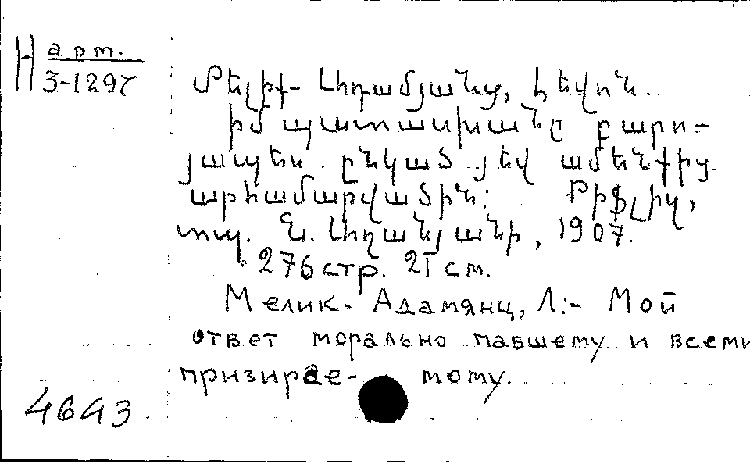 Н арт.
3-1297
Մելիք-Ադամյանց, Լեվոն.
Իմ պատասխանը բարո-
յապես ընկած յեվ ամենքից
արհամարվածին: Թիֆլիզ,
տպ. Ն. Աղանյանի, 1907.
276 стр. 21 см.
Мелик-Адамянц, Л.:- Мой
ответ морально павшему и всеми
призирае- мому.
4693.